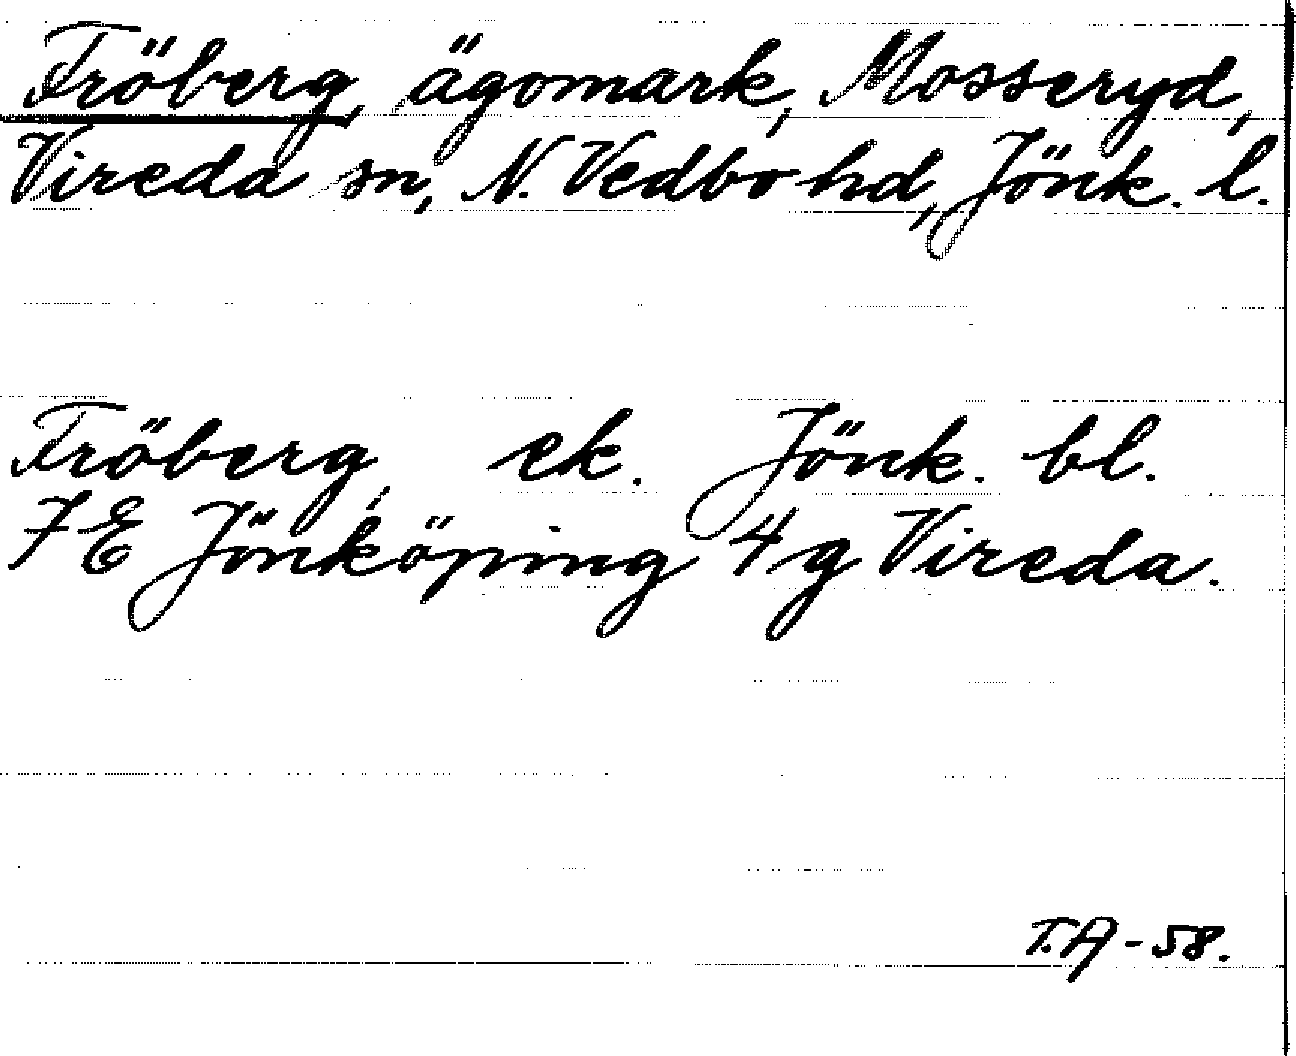 Fröberg, ägomark, Mosseryd,
Vireda sn, N. Vedbo hd, Jönk. l.
Fröberg, ek. Jönk. bl.
7 E Jönköping 4 g Vireda.
T.A-58.